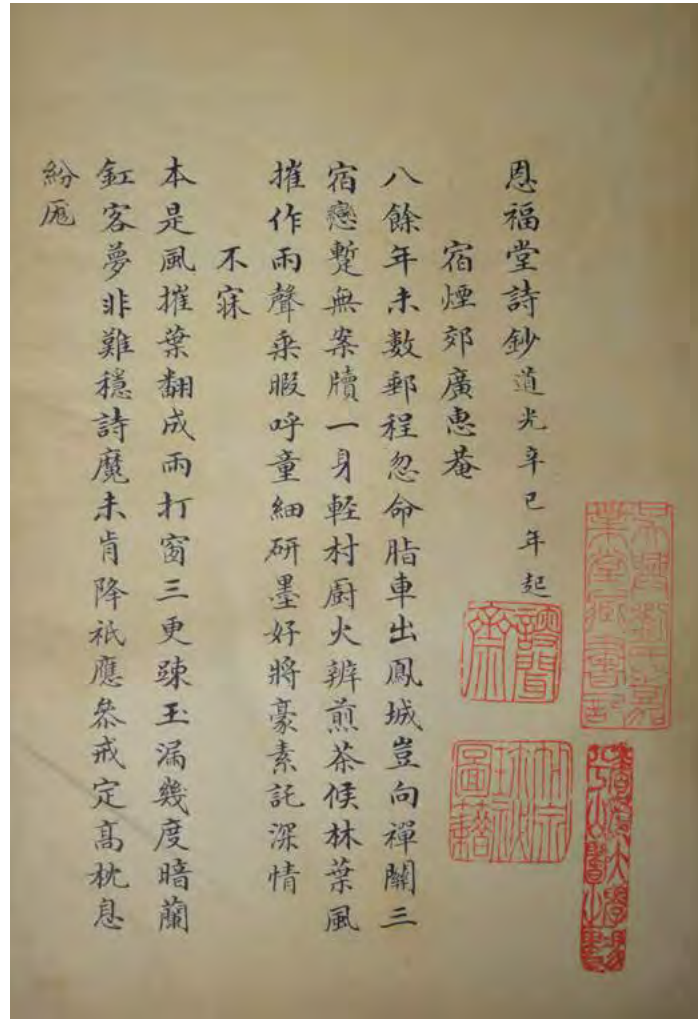 恩福堂詩鈔道光辛巳年起
宿煙郊廣惠菴
八餘年未數郵程忽命脂車出鳳城豈向禪關三
宿戀蹔無案牘一身輕村廚火辨煎茶候林葉風
摧作雨聲乘暇呼童細硏墨好將豪素託深情
不寐
本是風摧葉翻成雨打窗三更踈玉漏幾度暗蘭
釭客夢非難穩詩魔未肯降祇應叅戒定高枕息
紛厖
吳興劉氏嘉
業堂藏書記
謏聞
齋